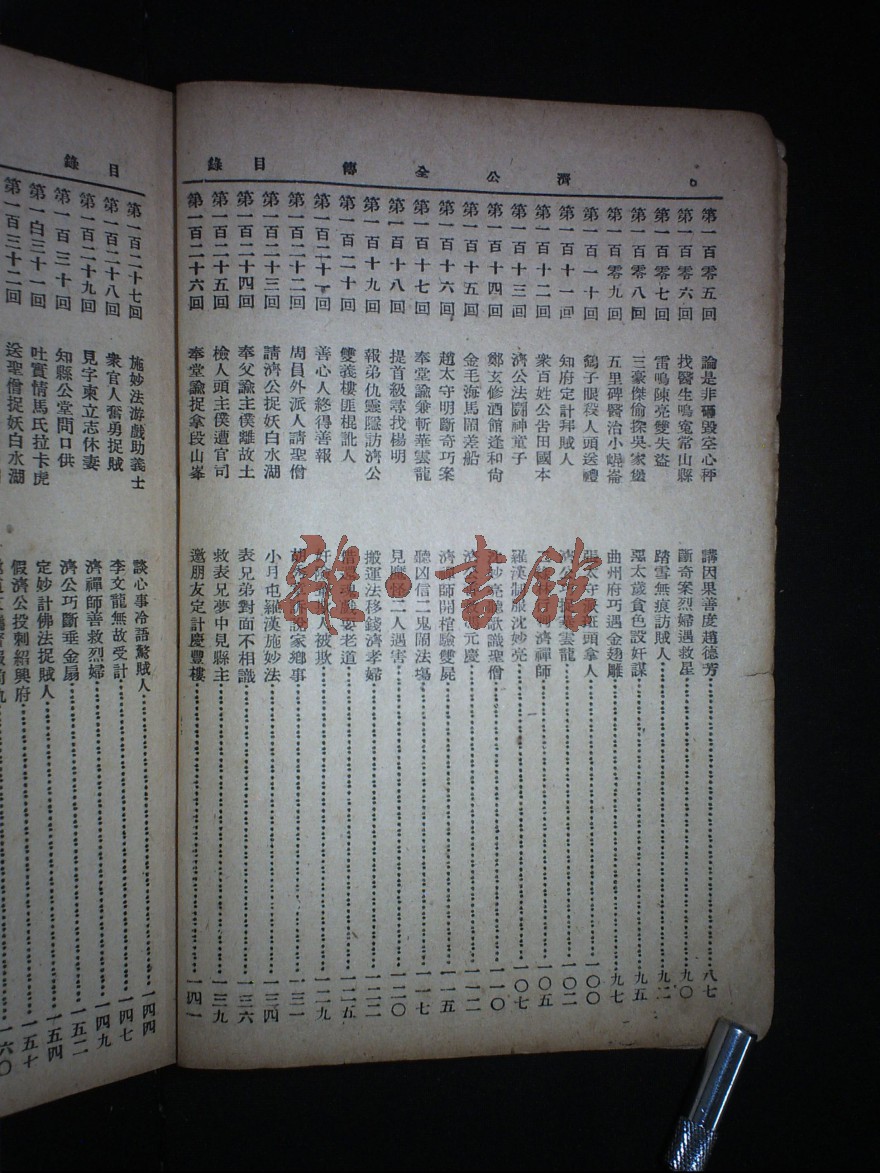 濟公全傳 目錄
第一百零五回 論是非砸毀空心秤 講因果善度趙德芳 八七
第一百零六回 找醫生鳴寃常山縣 斷奇案烈婦遇救星 九〇
第一百零七回 雷鳴陳亮雙失盜 踏雪無痕訪賊人 九二
第一百零八回 三豪傑偷探吳家堡 惡太歲貪色設奸謀 九五
第一百零九回 五里碑醫治小崑崙 曲州府巧遇金翅雕 九七
第一百一十回 鷂子眼殺人頭送禮 張太守派班頭拿人 一〇〇
第一百十一回 知府定計拜賊人 濟公巧捉華雲龍 一〇二
第一百十二回 衆百姓公告田國本 濟禪師 一〇五
第一百十三回 濟公法鬭神童子 羅漢制服沈妙亮 一〇七
第一百十四回 鄭玄修酒館逢和尚 沈妙亮聽歌識聖僧 一一〇
第一百十五回 金毛海馬鬧差船 濟公 元慶
第一百十六回 趙太守明斷奇巧案 濟禪師開棺驗雙屍 一一五
第一百十七回 奉堂諭兼斬華雲龍 聽凶信二鬼鬧法塲 一一七
第一百十八回 提首級尋找楊明 見魔怪二人遇害 一二〇
第一百十九回 報弟仇靈隱訪濟公 搬運法移錢濟孝婦 一二二
第一百二十回 雙義樓匪棍訛人 戲耍老道 一二五
第一百二十一回 善心人終得善報 人被欺 一二九
第一百二十二回 周員外派人請聖僧 胡秀章訴說家鄉事 一三一
第一百二十三回 請濟公捉妖白水湖 小月屯羅漢施妙法 一三四
第一百二十四回 奉父諭主僕離故土 表兄弟對面不相識 一三六
第一百二十五回 檢人頭主僕遭官司 救表兄夢中見縣主 一三九
第一百二十六回 奉堂諭捉拿段山峯 邀朋友定計慶豐樓 一四一
目錄
第一百二十七回 施妙法游戲助義士 談心事冷語驚賊人 一四四
第一百二十八回 衆官人奮勇捉賊 李文龍無故受計 一四七
第一百二十九回 見字柬立志休妻 濟禪師善救烈婦 一四九
第一百三十回 知縣公堂問口供 濟公巧斷垂金扇 一五二
第一白三十一回 吐實情馬氏拉卡虎 定妙計佛法捉賊人 一五四
第一百三十二回 送聖僧捉妖白水湖 假濟公投刺紹興府 一五七
一六〇
雜·書館